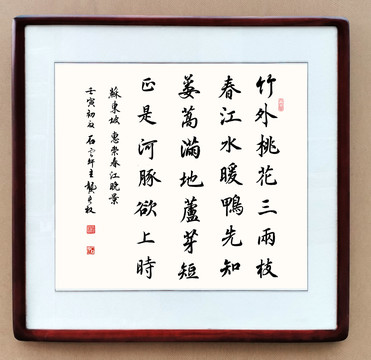 竹外桃花三兩枝
春江水暖鴨先知
蒌蒿滿地蘆芽短
正是河豚欲上時
蘇東坡 惠崇春江晚景
壬寅初